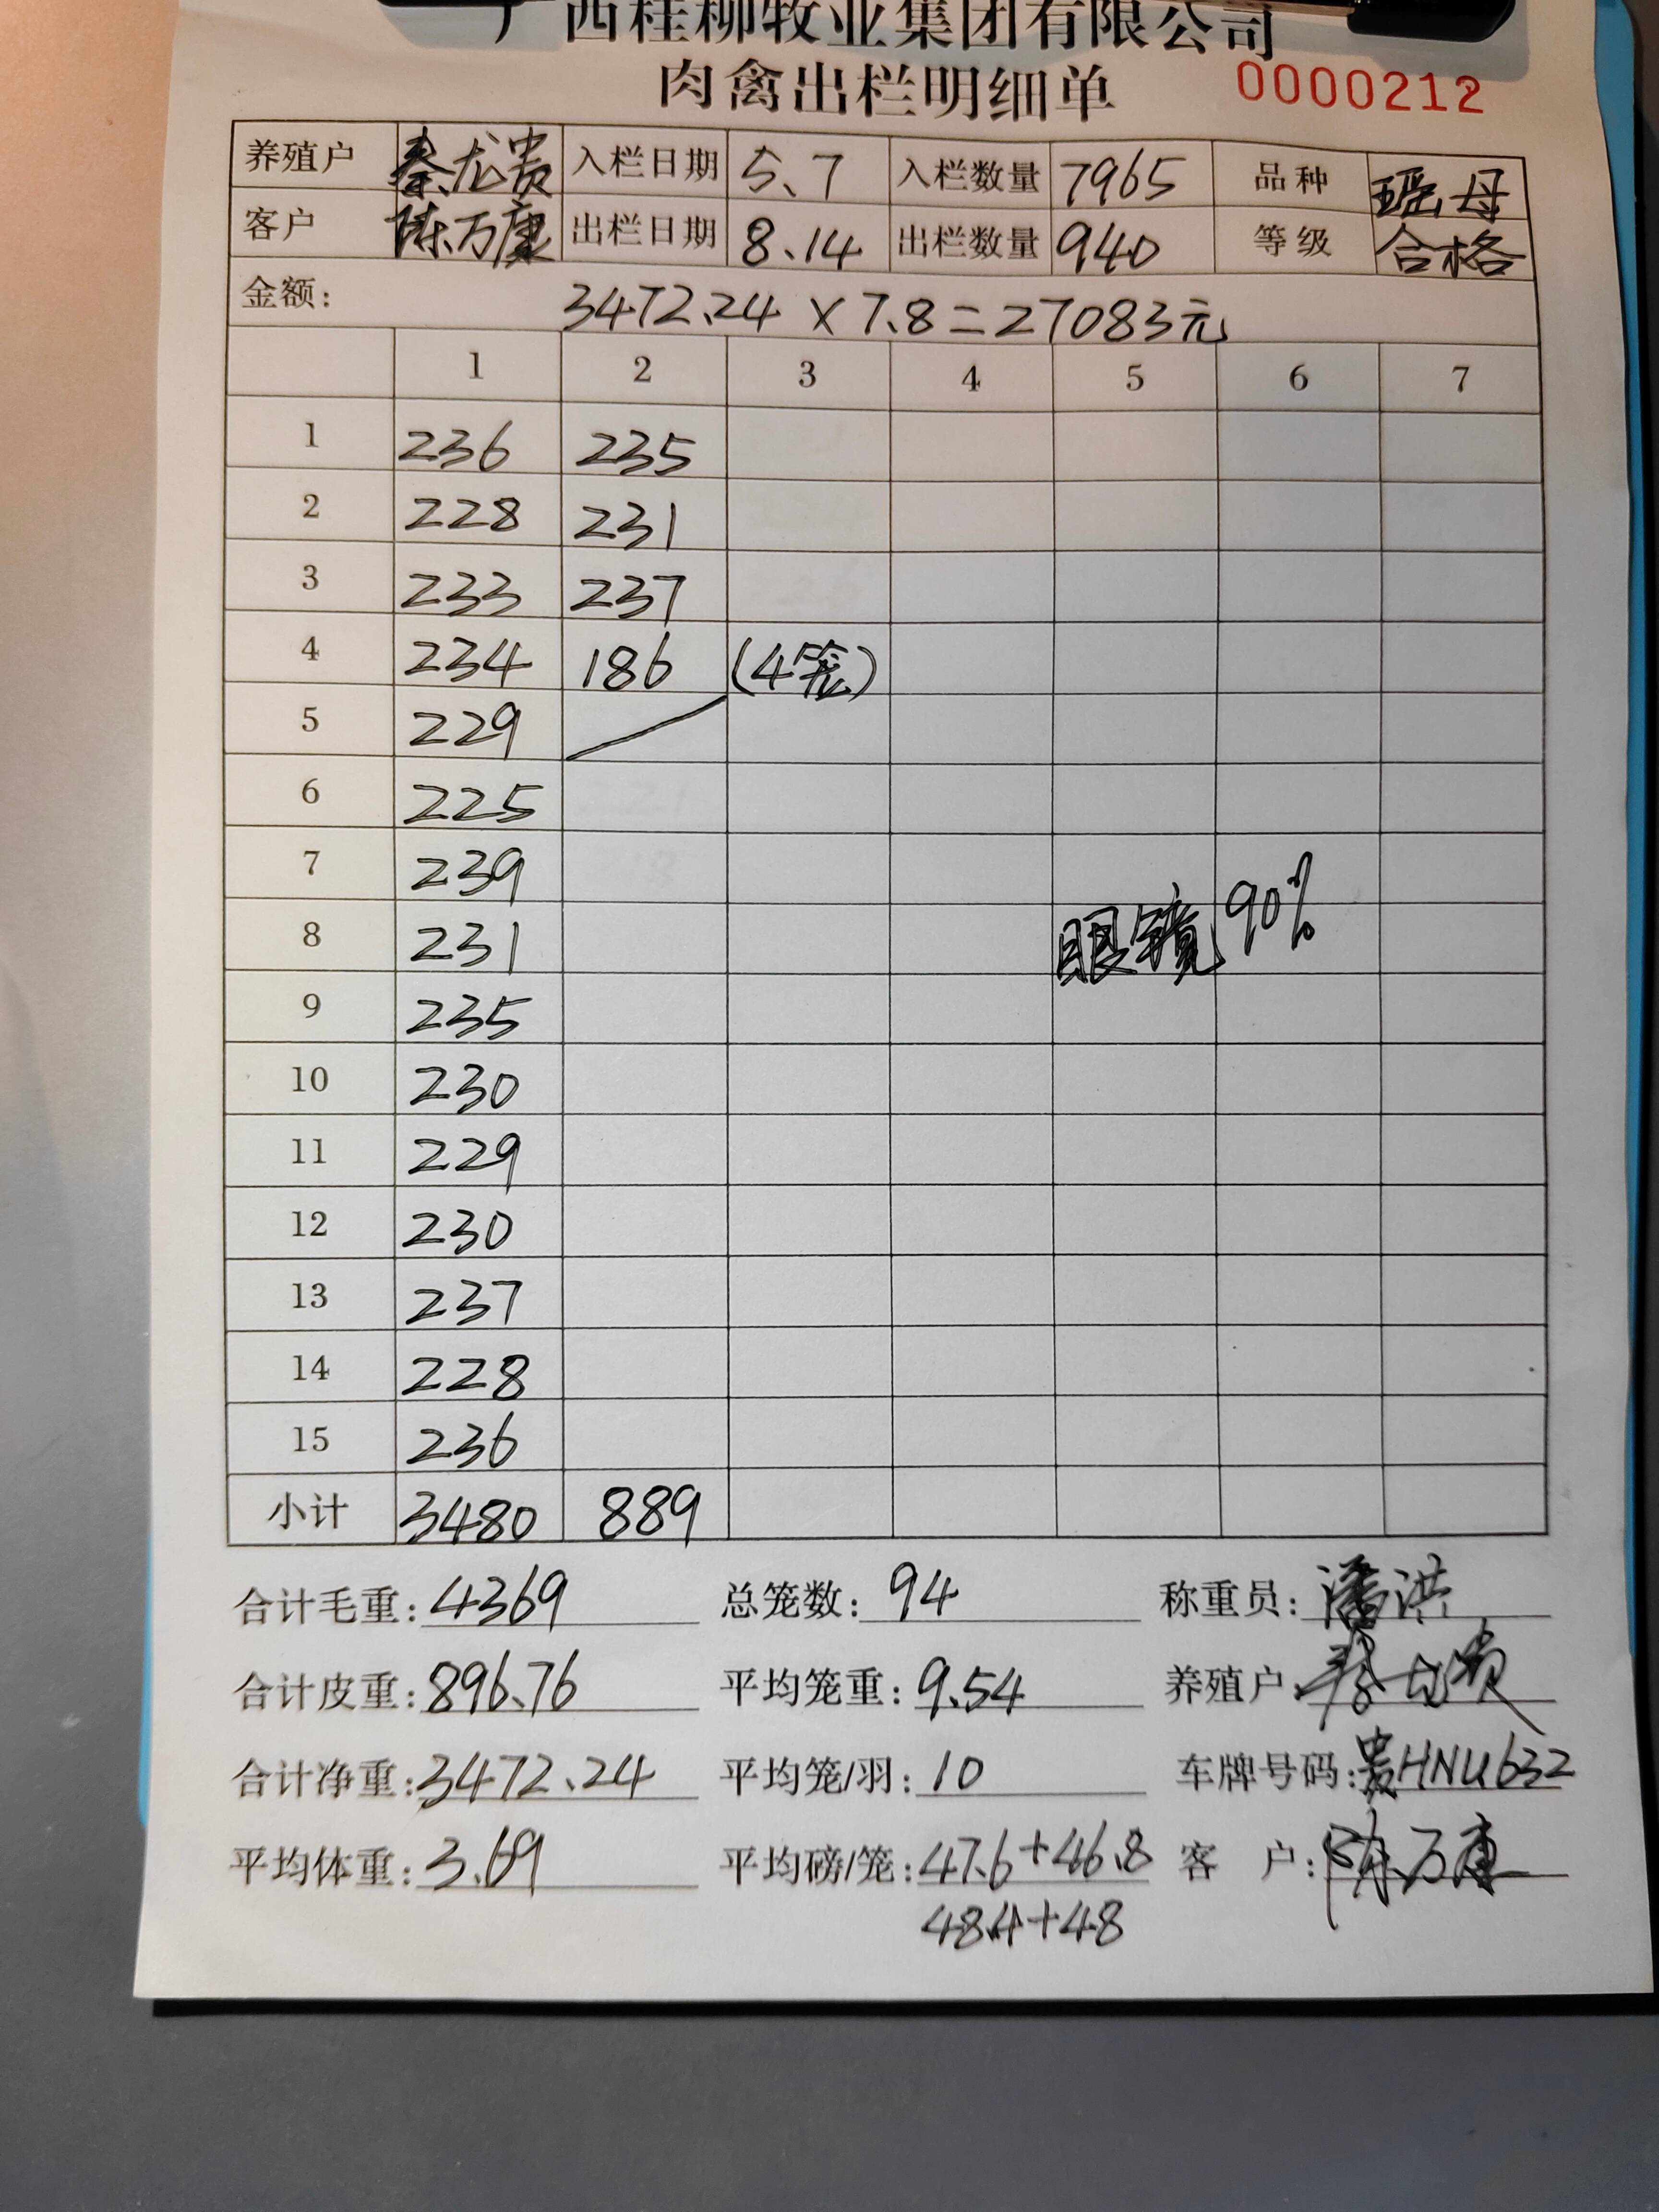 广西桂柳牧业集团有限公司
肉禽出栏明细单 0000212
养殖户 秦龙贵 入栏日期 5.7 入栏数量 7965 品种 瑶母
客户 陈万康 出栏日期 8.14 出栏数量 940 等级 合格
金额: 3472.24 × 7.8 = 27083元
1 2 3 4 5 6 7
1 236 235
2 228 231
3 233 237
4 234 186 (4笼)
5 229
6 225
7 239
8 231 眼镜 90%
9 235
10 230
11 229
12 230
13 237
14 228
15 236
小计 3480 889
合计毛重: 4369 总笼数: 94 称重员: 潘洪
合计皮重: 896.76 平均笼重: 9.54 养殖户: 秦龙贵
合计净重: 3472.24 平均笼/羽: 10 车牌号码: 贵HNU632
平均体重: 3.69 平均磅/笼: 47.6+46.8 客 户: 陈万康
48.4+48